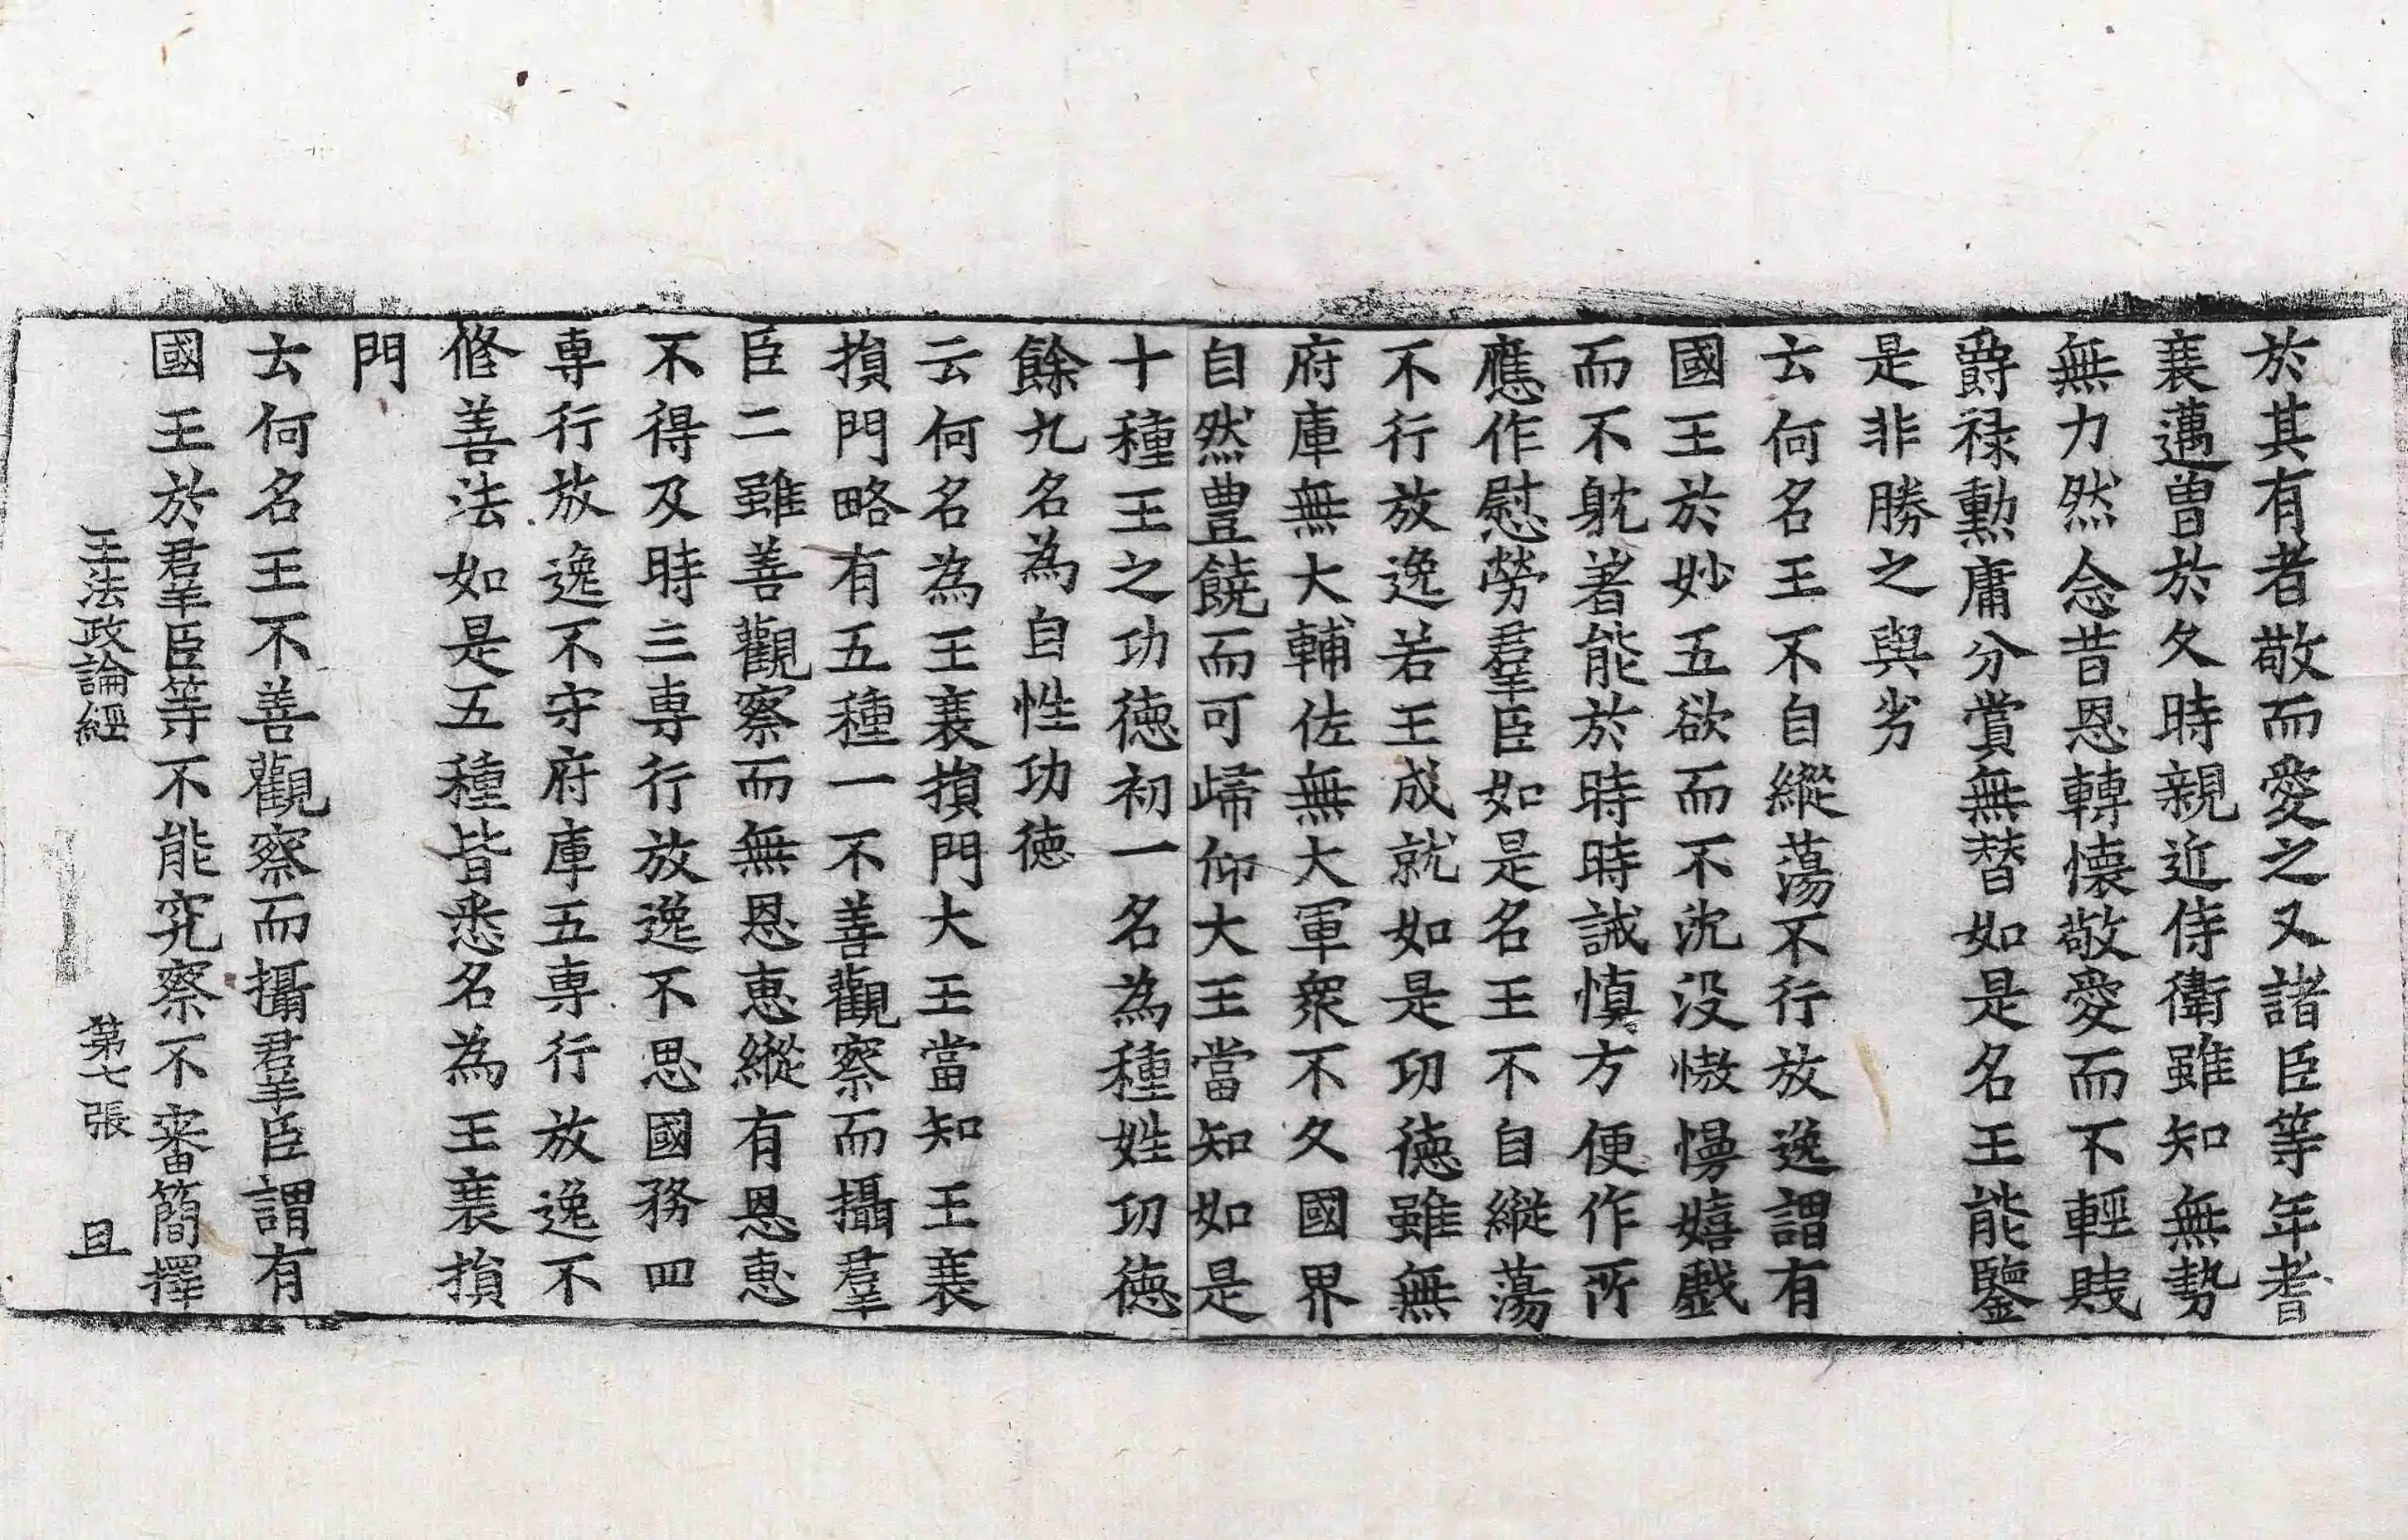 於其有者敬而愛之又諸臣等年耆
衰邁曽於久時親近侍衛雖知無勢
無力然念昔恩轉懐敬愛而不輕賎
爵禄勲庸分賞無替如是名王能鑒
是非勝之與劣
云何名王不自縱蕩不行放逸謂有
國王於妙五欲而不沈没慠慢嬉戲
而不躭著能於時時誡慎方便作所
應作慰勞羣臣如是名王不自縱蕩
不行放逸若王成就如是功徳雖無
府庫無大輔佐無大軍衆不久國界
自然豊饒而可歸仰大王當知如是
十種王之功徳初一名為種姓功徳
餘九名為自性功徳
云何名為王衰損門大王當知王衰
損門略有五種一不善觀察而攝羣
臣二雖善觀察而無恩恵縱有恩恵
不得及時三専行放逸不思國務四
専行放逸不守府庫五専行放逸不
修善法如是五種皆悉名為王衰損
門
云何名王不善觀察而攝羣臣謂有
國王於羣臣等不能究察不審簡擇
王法政論經 第七張 且